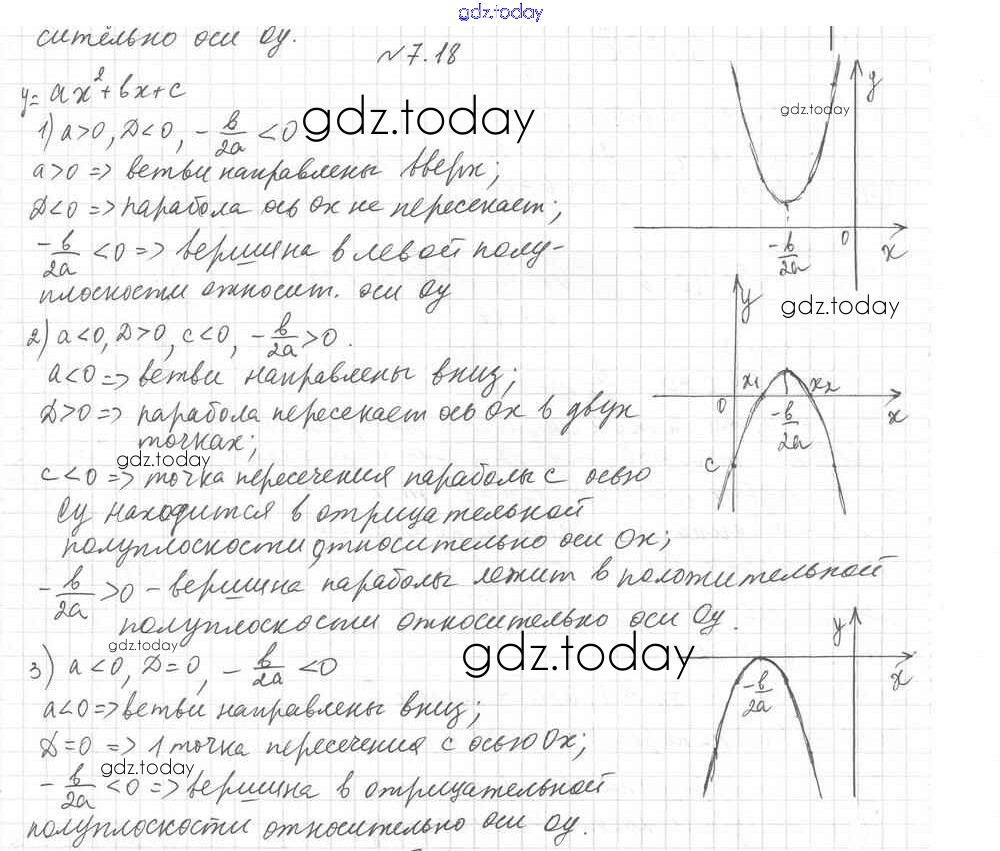 gdz.today
сительно оси Oy.
№7.18
y = ax² + bx + c
1) a>0, D<0, -b/2a <0 gdz.today
a>0 => ветви направлены вверх;
D<0 => парабола ось Ox не пересекает;
-b/2a <0 => вершина в левой полу-
плоскости относит. оси Oy
gdz.today
y
-b/2a 0 x
2) a<0, D>0, c<0, -b/2a >0.
a<0 => ветви направлены вниз;
D>0 => парабола пересекает ось Ox в двух
точках;
gdz.today
c<0 => точка пересечения параболы с осью
Oy находится в отрицательной
полуплоскости относительно оси Ox;
-b/2a >0 - вершина параболы лежит в положительной
полуплоскости относительно оси Oy.
y gdz.today
0 x₁ x₂ x
-b/2a
c
gdz.today
3) a<0, D=0, -b/2a <0 gdz.today
a<0 => ветви направлены вниз;
D=0 => 1 точка пересечения с осью Ox;
gdz.today
-b/2a <0 => вершина в отрицательной
полуплоскости относительно оси Oy.
y
x
-b/2a